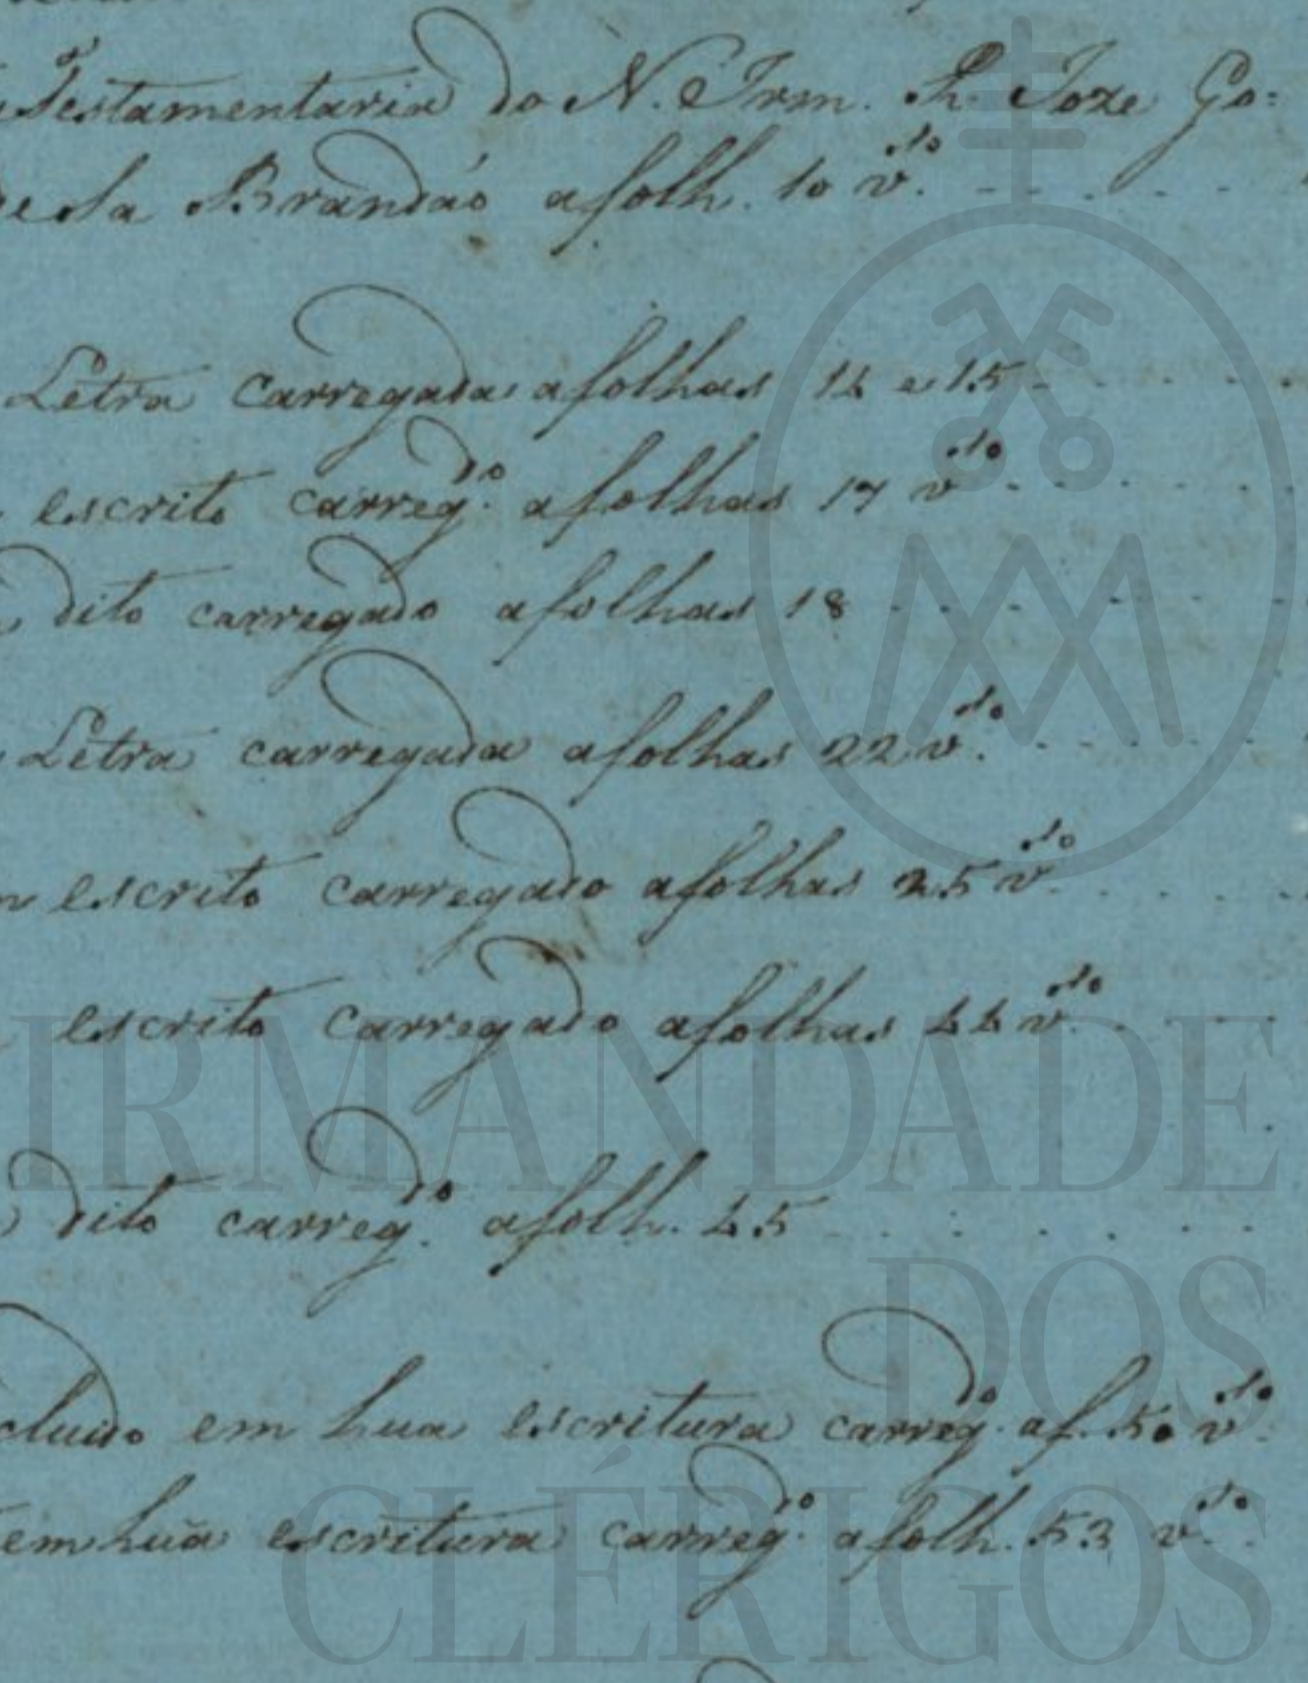 Testamentaria do N. Irm. P. Joze Go=
de Sa Brandaõ a folh. 10 v.do
Letra carregada a folhas 14 e 15
escrito carreg.do a folhas 17 v.do
dito carregado a folhas 18
Letra carregada a folhas 22 v.do
escrito carregado a folhas 25 v.do
escrito carregado a folhas 44 v.do
dito carreg.do a folh. 45
cluido em hua escritura carreg.do a f. 50 v.do
em huã escritura carreg.do a folh. 53 v.do
IRMANDADE
DOS
CLÉRIGOS